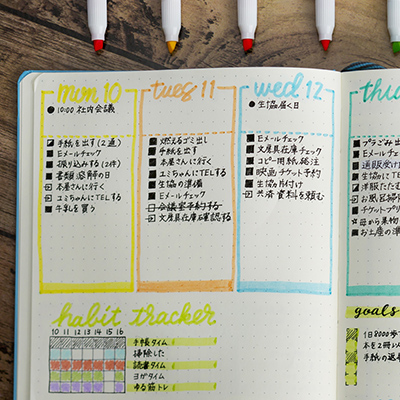 mon 10
● 10:00 社内会議
手紙を出す(2通)
Eメールチェック
振り込みする(2件)
書類 溶解の日
本屋さんに行く
ユミちゃんにTELする
牛乳を買う
tues 11
燃えるゴミ出し
手紙を出す
本屋さんに行く
ユミちゃんにTELする
生協の準備
Eメールチェック
会議室予約する
文房具在庫確認する
wed 12
● 生協届く日
Eメールチェック
文房具在庫チェック
コピー用紙発注
映画チケット予約
生協片付け
共済資料を頼む
thu
プラごみ出
Eメール
生協にTE
洋服たたむ
お風呂掃
チケットプリ
母から果物
お土産の準
habit tracker
10 11 12 13 14 15 16
手帳タイム
掃除した
読書タイム
ヨガタイム
ゆる筋トレ
goals
1日8000歩
本を2冊
手紙の返